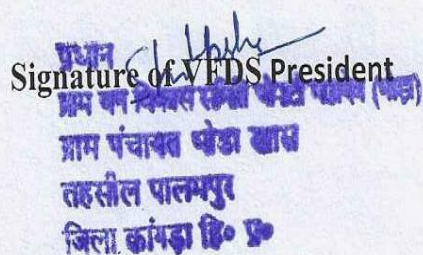 प्रधान
Signature of VFDS President
ग्राम वन विकास
ग्राम पंचायत खास
तहसील पालमपुर
जिला कांगड़ा हि० प्र०